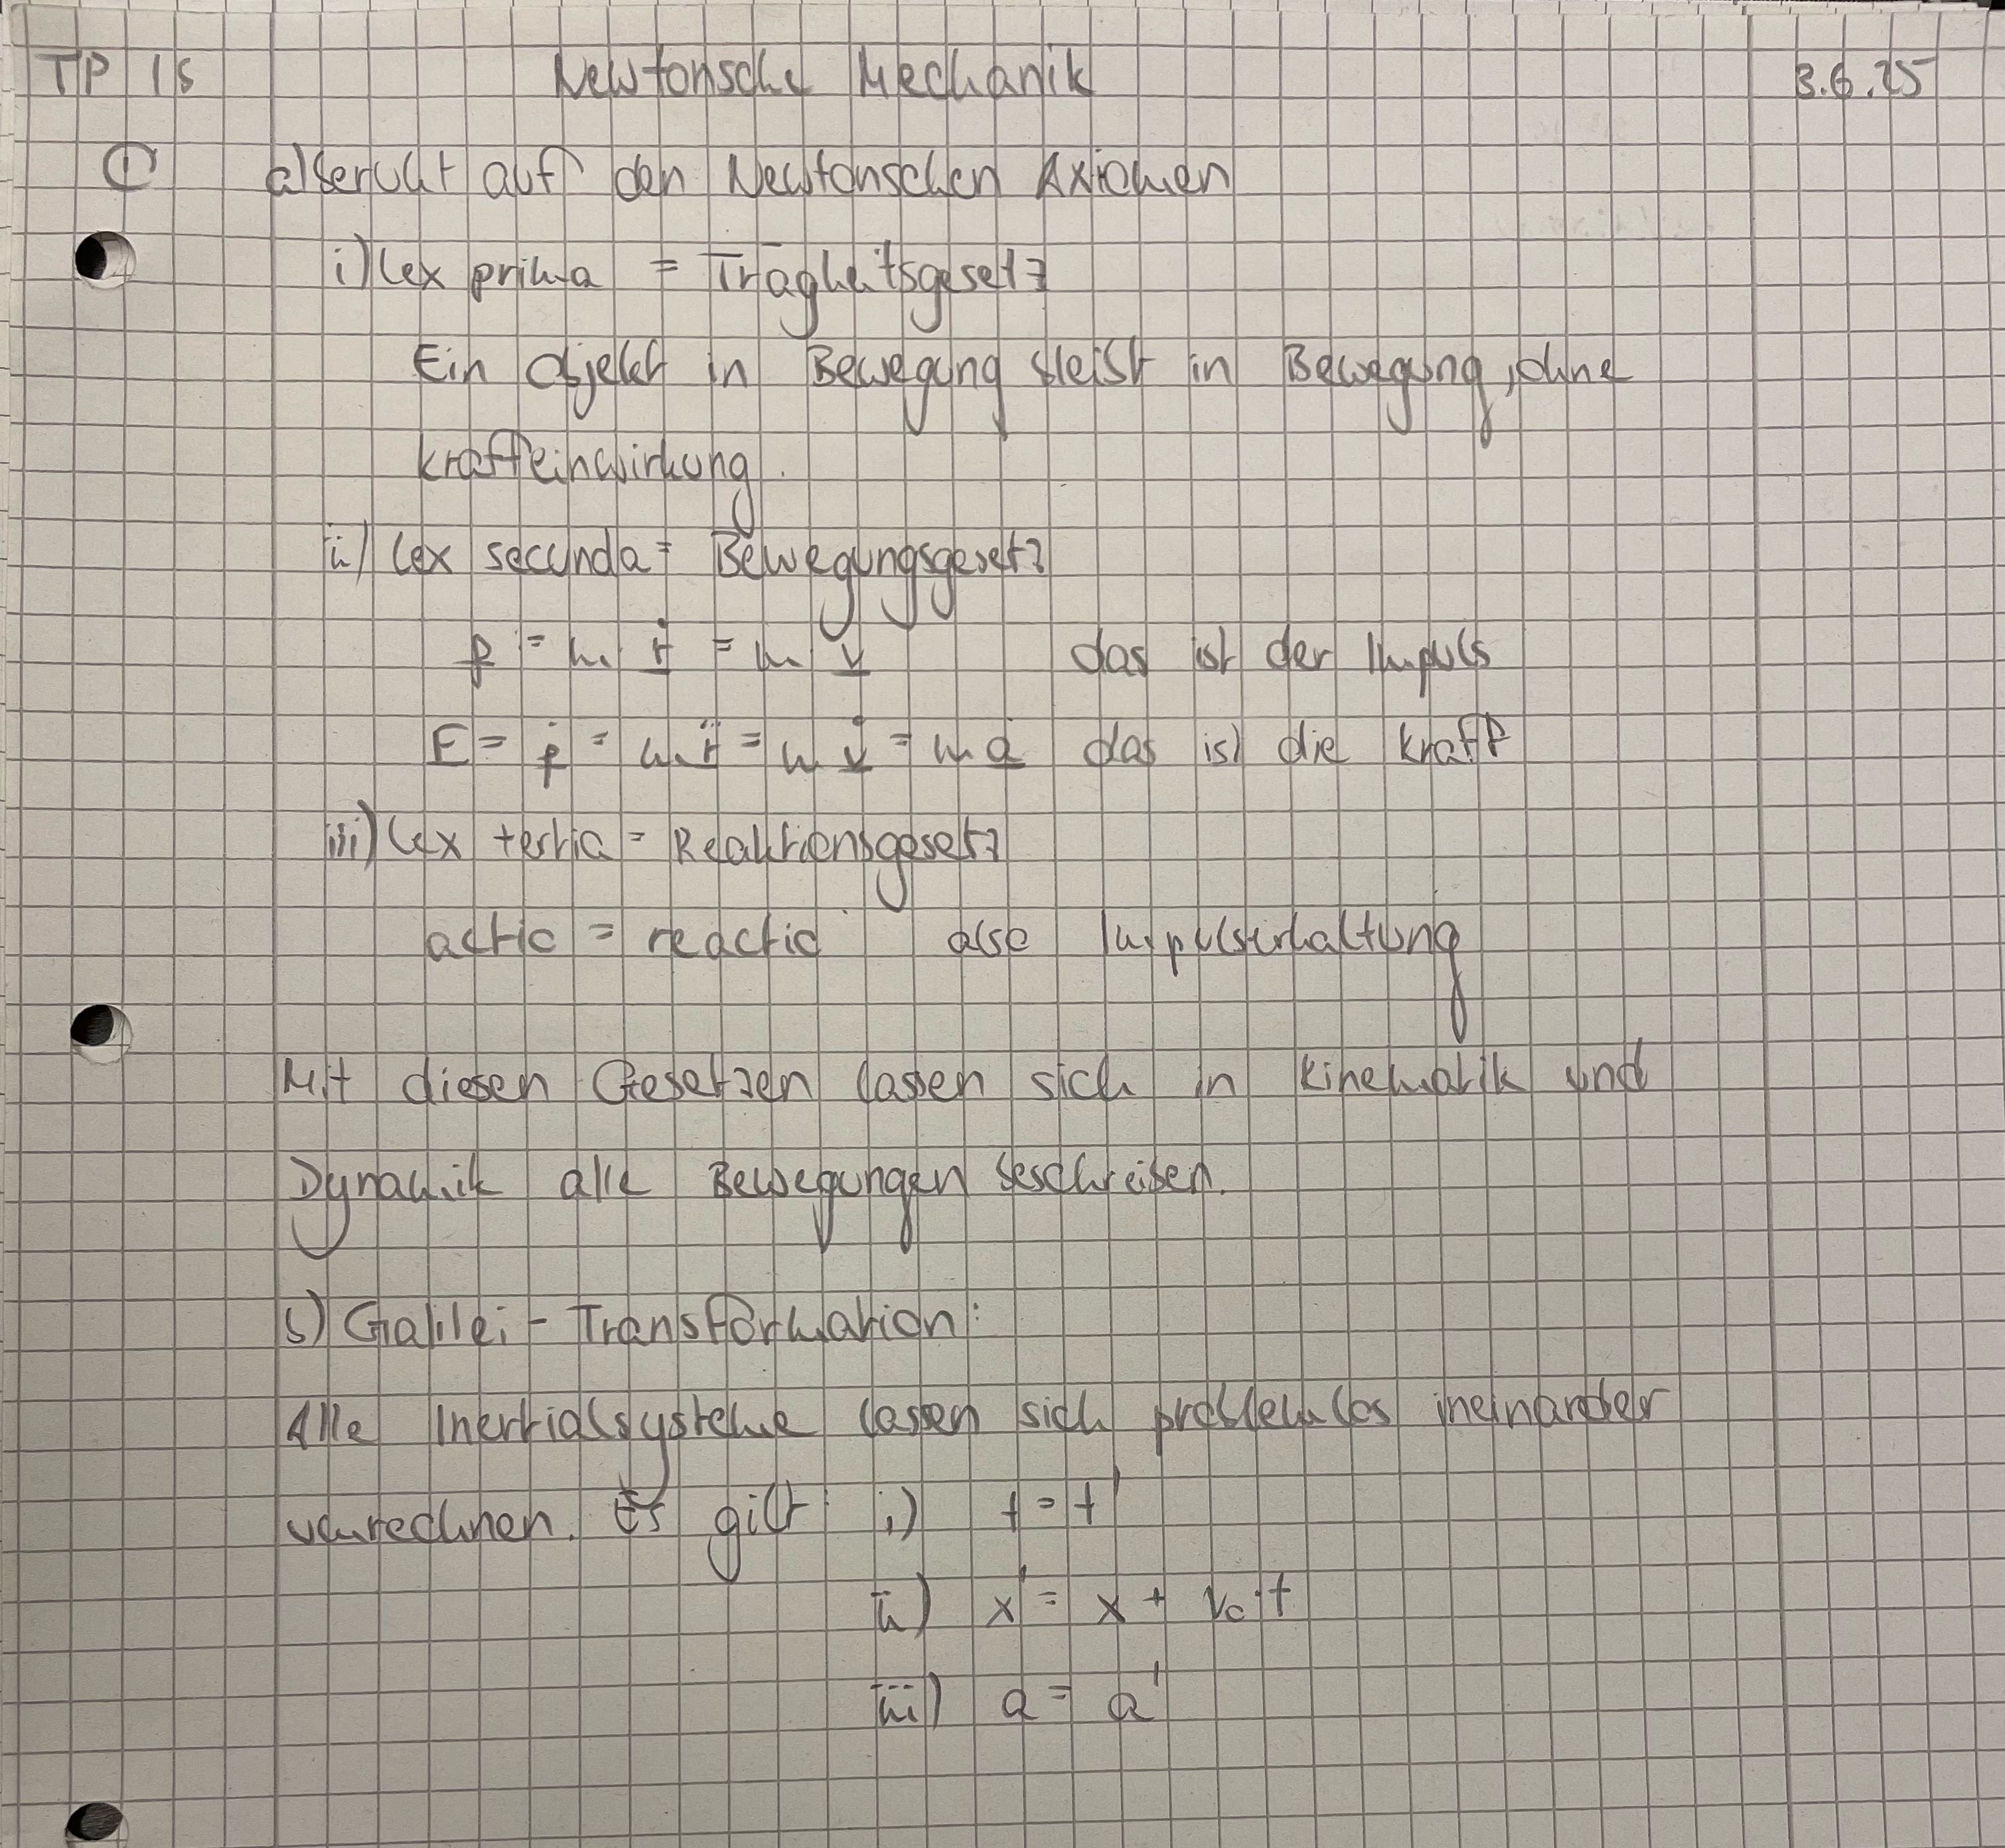 TP 1b Newtonsche Mechanik 3.6.25
① a) beruht auf den Newtonschen Axiomen
i) lex prima = Trägheitsgesetz
Ein Objekt in Bewegung bleibt in Bewegung, ohne
Krafteinwirkung.
ii) lex secunda = Bewegungsgesetz
p̲ = m ṙ̲ = m v̲ das ist der Impuls
F̲ = ṗ̲ = m r̲̈ = m v̲̇ = m a̲ das ist die Kraft
iii) lex tertia = Reaktionsgesetz
actio = reactio also Impulserhaltung
Mit diesen Gesetzen lassen sich in Kinematik und
Dynamik alle Bewegungen beschreiben.
b) Galilei-Transformation:
Alle Inertialsysteme lassen sich problemlos ineinander
umrechnen. Es gilt i) t = t'
ii) x' = x + v₀·t
iii) a = a'